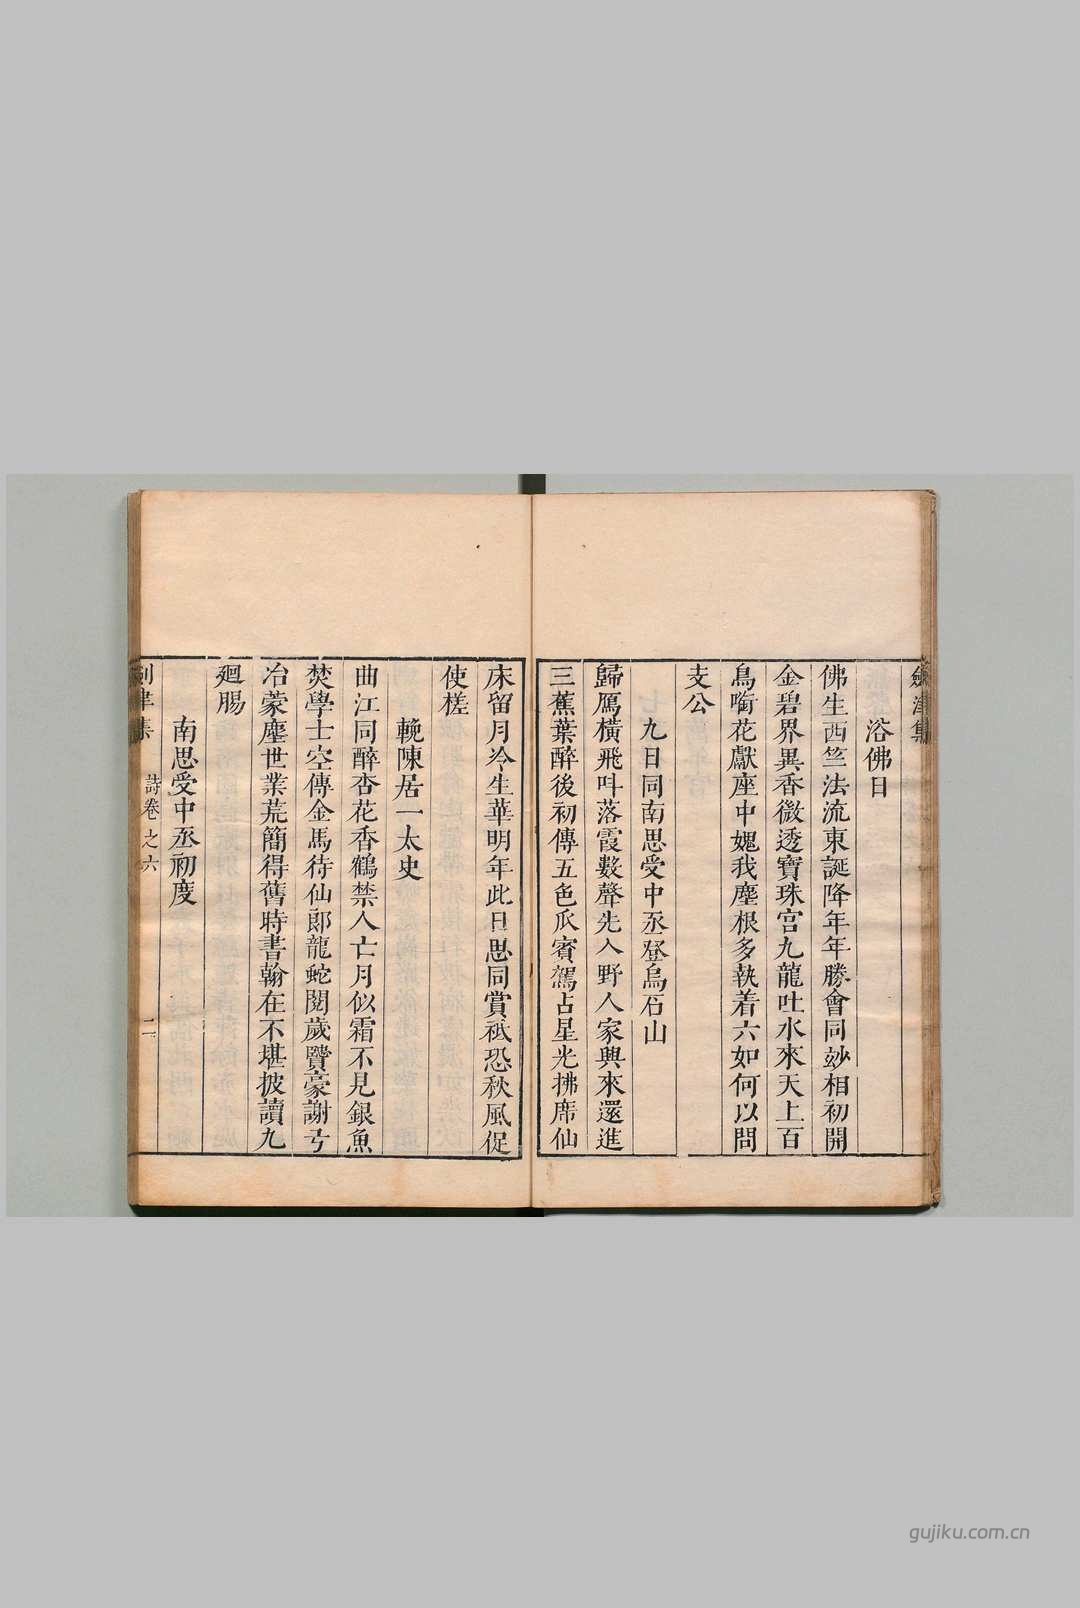 劍津集
浴佛日
佛生西竺法流東誕降年年勝會同玅相初開
金碧界異香微透寶珠宫九龍吐水來天上百
鳥啣花獻座中媿我塵根多執着六如何以問
支公
九日同南思受中丞登烏石山
歸鴈橫飛呌落霞數聲先入野人家興來還進
三蕉葉醉後初傳五色瓜賓駕占星光拂席仙
床留月冷生華明年此日思同賞祗恐秋風促
使槎
輓陳居一太史
曲江同醉杏花香鶴禁人亡月似霜不見銀魚
焚學士空傳金馬待仙郎龍蛇閱歲贒豪謝弓
冶蒙塵世業荒簡得舊時書翰在不堪披讀九
廻腸
南思受中丞初度
劍津集
詩卷之六
二
gujiku.com.cn